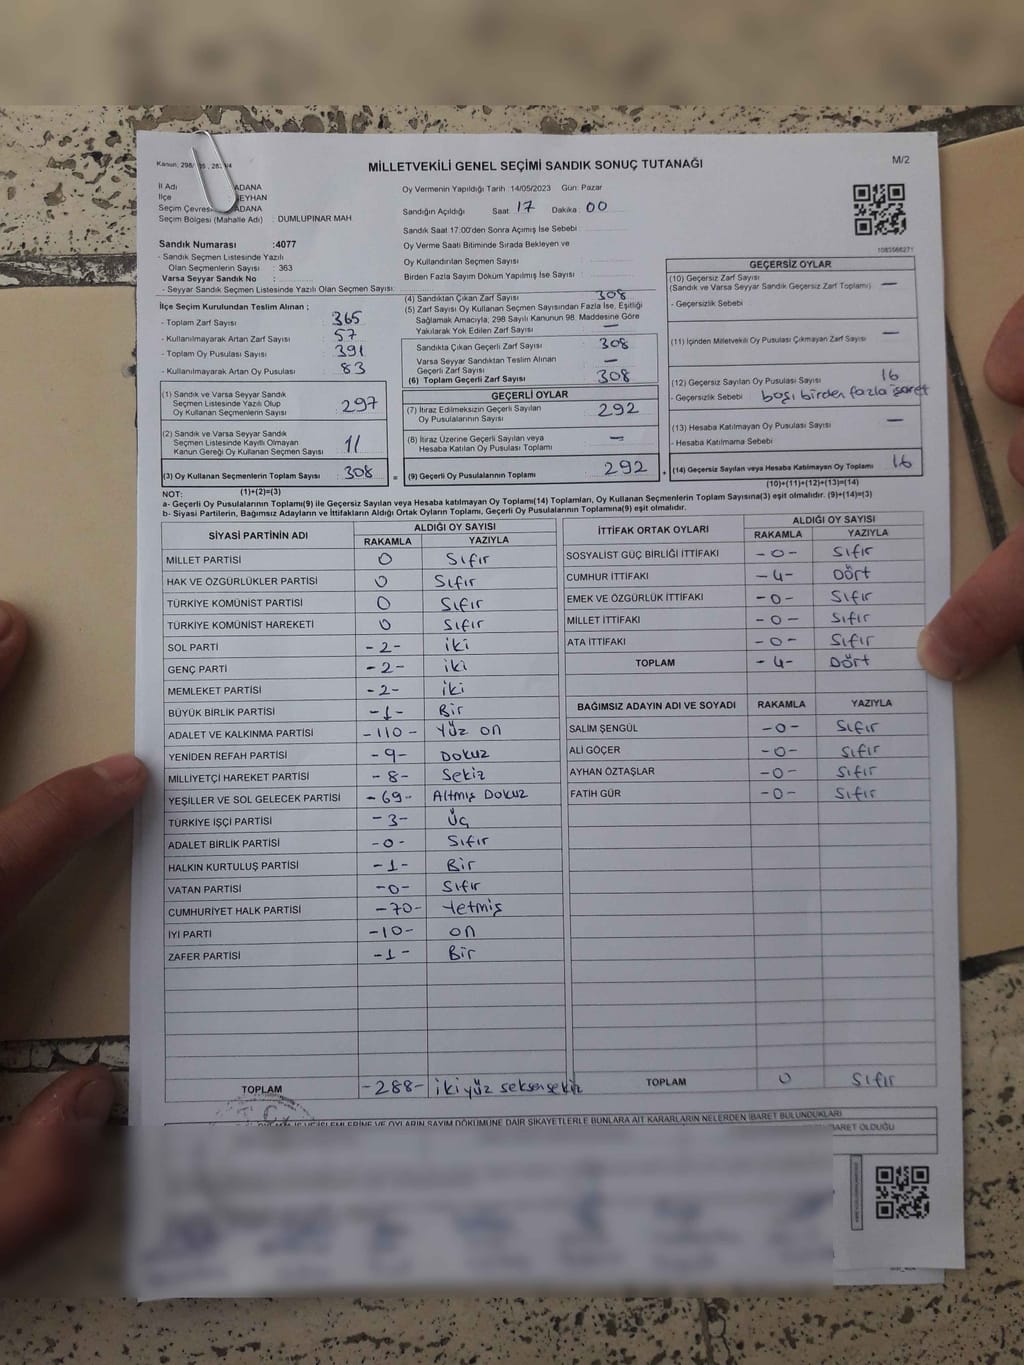 Kanun, 298/
MİLLETVEKİLİ GENEL SEÇİMİ SANDIK SONUÇ TUTANAĞI
M/2
İl Adı ADANA
İlçe SEYHAN
Seçim Çevresi ADANA
Seçim Bölgesi (Mahalle Adı) : DUMLUPINAR MAH
Sandık Numarası :4077
- Sandık Seçmen Listesinde Yazılı
Olan Seçmenlerin Sayısı : 363
Varsa Seyyar Sandık No :
- Seyyar Sandık Seçmen Listesinde Yazılı Olan Seçmen Sayısı:
Oy Vermenin Yapıldığı Tarih :14/05/2023 Gün: Pazar
Sandığın Açıldığı Saat : 17 Dakika : 00
Sandık Saat 17.00'den Sonra Açımış İse Sebebi
Oy Verme Saati Bitiminde Sırada Bekleyen ve
Oy Kullandırılan Seçmen Sayısı :
Birden Fazla Sayım Döküm Yapılmış İse Sayısı :
1083566271
İlçe Seçim Kurulundan Teslim Alınan ;
- Toplam Zarf Sayısı : 365
- Kullanılmayarak Artan Zarf Sayısı : 57
- Toplam Oy Pusulası Sayısı : 391
- Kullanılmayarak Artan Oy Pusulası : 83
(1) Sandık ve Varsa Seyyar Sandık
Seçmen Listesinde Yazılı Olup
Oy Kullanan Seçmenlerin Sayısı : 297
(2) Sandık ve Varsa Seyyar Sandık
Seçmen Listesinde Kayıtlı Olmayan
Kanun Gereği Oy Kullanan Seçmen Sayısı : 11
(3) Oy Kullanan Seçmenlerin Toplam Sayısı : 308
(4) Sandıktan Çıkan Zarf Sayısı : 308
(5) Zarf Sayısı Oy Kullanan Seçmen Sayısından Fazla İse, Eşitliği
Sağlamak Amacıyla; 298 Sayılı Kanunun 98. Maddesine Göre
Yakılarak Yok Edilen Zarf Sayısı : —
Sandıkta Çıkan Geçerli Zarf Sayısı : 308
Varsa Seyyar Sandıktan Teslim Alınan
Geçerli Zarf Sayısı : —
(6) Toplam Geçerli Zarf Sayısı : 308
GEÇERLİ OYLAR
(7) İtiraz Edilmeksizin Geçerli Sayılan
Oy Pusulalarının Sayısı : 292
(8) İtiraz Üzerine Geçerli Sayılan veya
Hesaba Katılan Oy Pusulası Toplamı : —
= (9) Geçerli Oy Pusulalarının Toplamı : 292
GEÇERSİZ OYLAR
(10) Geçersiz Zarf Sayısı
(Sandık ve Varsa Seyyar Sandık Geçersiz Zarf Toplamı) : —
- Geçersizlik Sebebi :
(11) İçinden Milletvekili Oy Pusulası Çıkmayan Zarf Sayısı : —
(12) Geçersiz Sayılan Oy Pusulası Sayısı : 16
- Geçersizlik Sebebi : boşı birden fazla işaret
(13) Hesaba Katılmayan Oy Pusulası Sayısı : —
- Hesaba Katılmama Sebebi :
+ (14) Geçersiz Sayılan veya Hesaba Katılmayan Oy Toplamı : 16
(1)+(2)=(3)
(10)+(11)+(12)+(13)=(14)
NOT:
a- Geçerli Oy Pusulalarının Toplamı(9) ile Geçersiz Sayılan veya Hesaba katılmayan Oy Toplamı(14) Toplamları, Oy Kullanan Seçmenlerin Toplam Sayısına(3) eşit olmalıdır. (9)+(14)=(3)
b- Siyasi Partilerin, Bağımsız Adayların ve İttifakların Aldığı Ortak Oyların Toplamı, Geçerli Oy Pusulalarının Toplamına(9) eşit olmalıdır.
SİYASİ PARTİNİN ADI ALDIĞI OY SAYISI
RAKAMLA YAZIYLA
MİLLET PARTİSİ 0 Sıfır
HAK VE ÖZGÜRLÜKLER PARTİSİ 0 Sıfır
TÜRKİYE KOMÜNİST PARTİSİ 0 Sıfır
TÜRKİYE KOMÜNİST HAREKETİ 0 Sıfır
SOL PARTİ -2- iki
GENÇ PARTİ -2- iki
MEMLEKET PARTİSİ -2- iki
BÜYÜK BİRLİK PARTİSİ -1- Bir
ADALET VE KALKINMA PARTİSİ -110- Yüz on
YENİDEN REFAH PARTİSİ -9- Dokuz
MİLLİYETÇİ HAREKET PARTİSİ -8- Sekiz
YEŞİLLER VE SOL GELECEK PARTİSİ -69- Altmış Dokuz
TÜRKİYE İŞÇİ PARTİSİ -3- Üç
ADALET BİRLİK PARTİSİ -0- Sıfır
HALKIN KURTULUŞ PARTİSİ -1- Bir
VATAN PARTİSİ -0- Sıfır
CUMHURİYET HALK PARTİSİ -70- Yetmiş
İYİ PARTİ -10- on
ZAFER PARTİSİ -1- Bir
TOPLAM -288- ikiyüz seksensekiz
İTTİFAK ORTAK OYLARI ALDIĞI OY SAYISI
RAKAMLA YAZIYLA
SOSYALİST GÜÇ BİRLİĞİ İTTİFAKI -0- Sıfır
CUMHUR İTTİFAKI -4- Dört
EMEK VE ÖZGÜRLÜK İTTİFAKI -0- Sıfır
MİLLET İTTİFAKI -0- Sıfır
ATA İTTİFAKI -0- Sıfır
TOPLAM -4- Dört
BAĞIMSIZ ADAYIN ADI VE SOYADI RAKAMLA YAZIYLA
SALİM ŞENGÜL -0- Sıfır
ALİ GÖÇER -0- Sıfır
AYHAN ÖZTAŞLAR -0- Sıfır
FATİH GÜR -0- Sıfır
TOPLAM 0 Sıfır
İŞLEMLERİNE VE OYLARIN SAYIM DÖKÜMÜNE DAİR ŞİKAYETLERLE BUNLARA AİT KARARLARIN NELERDEN İBARET BULUNDUKLARI
İBARET OLDUĞU